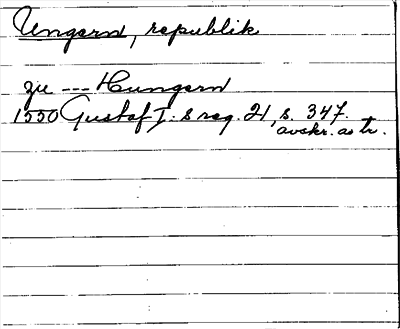 Ungern, republik
zu --- Hungern
1550 Gustaf I:s reg. 21, s. 347.
avskr. av tr.